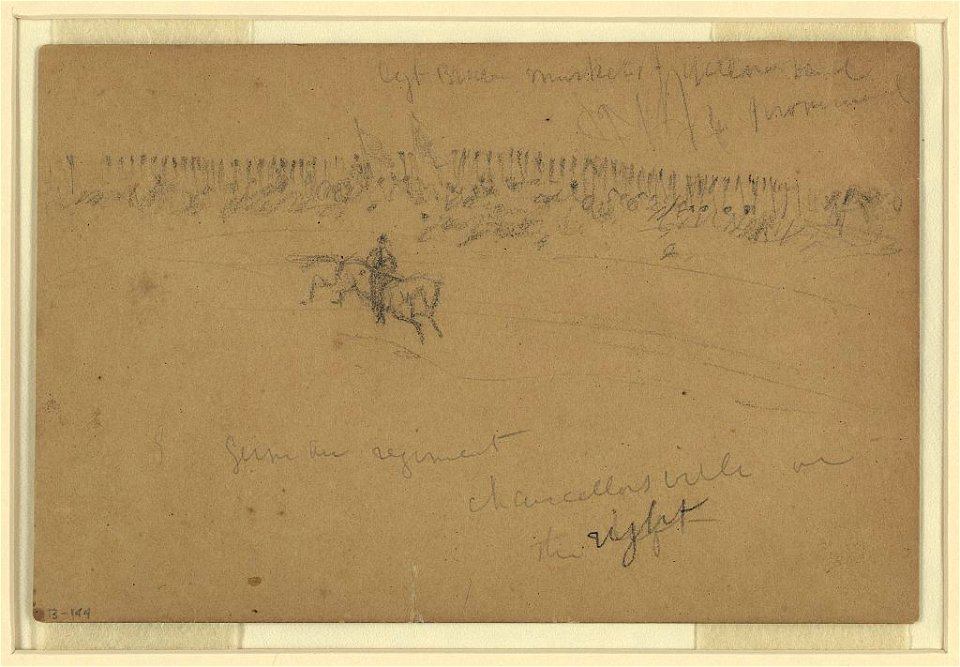 Lgt Brown muskets yellow band
& prominent
German regiment
chancellorsville on
the right
B-144